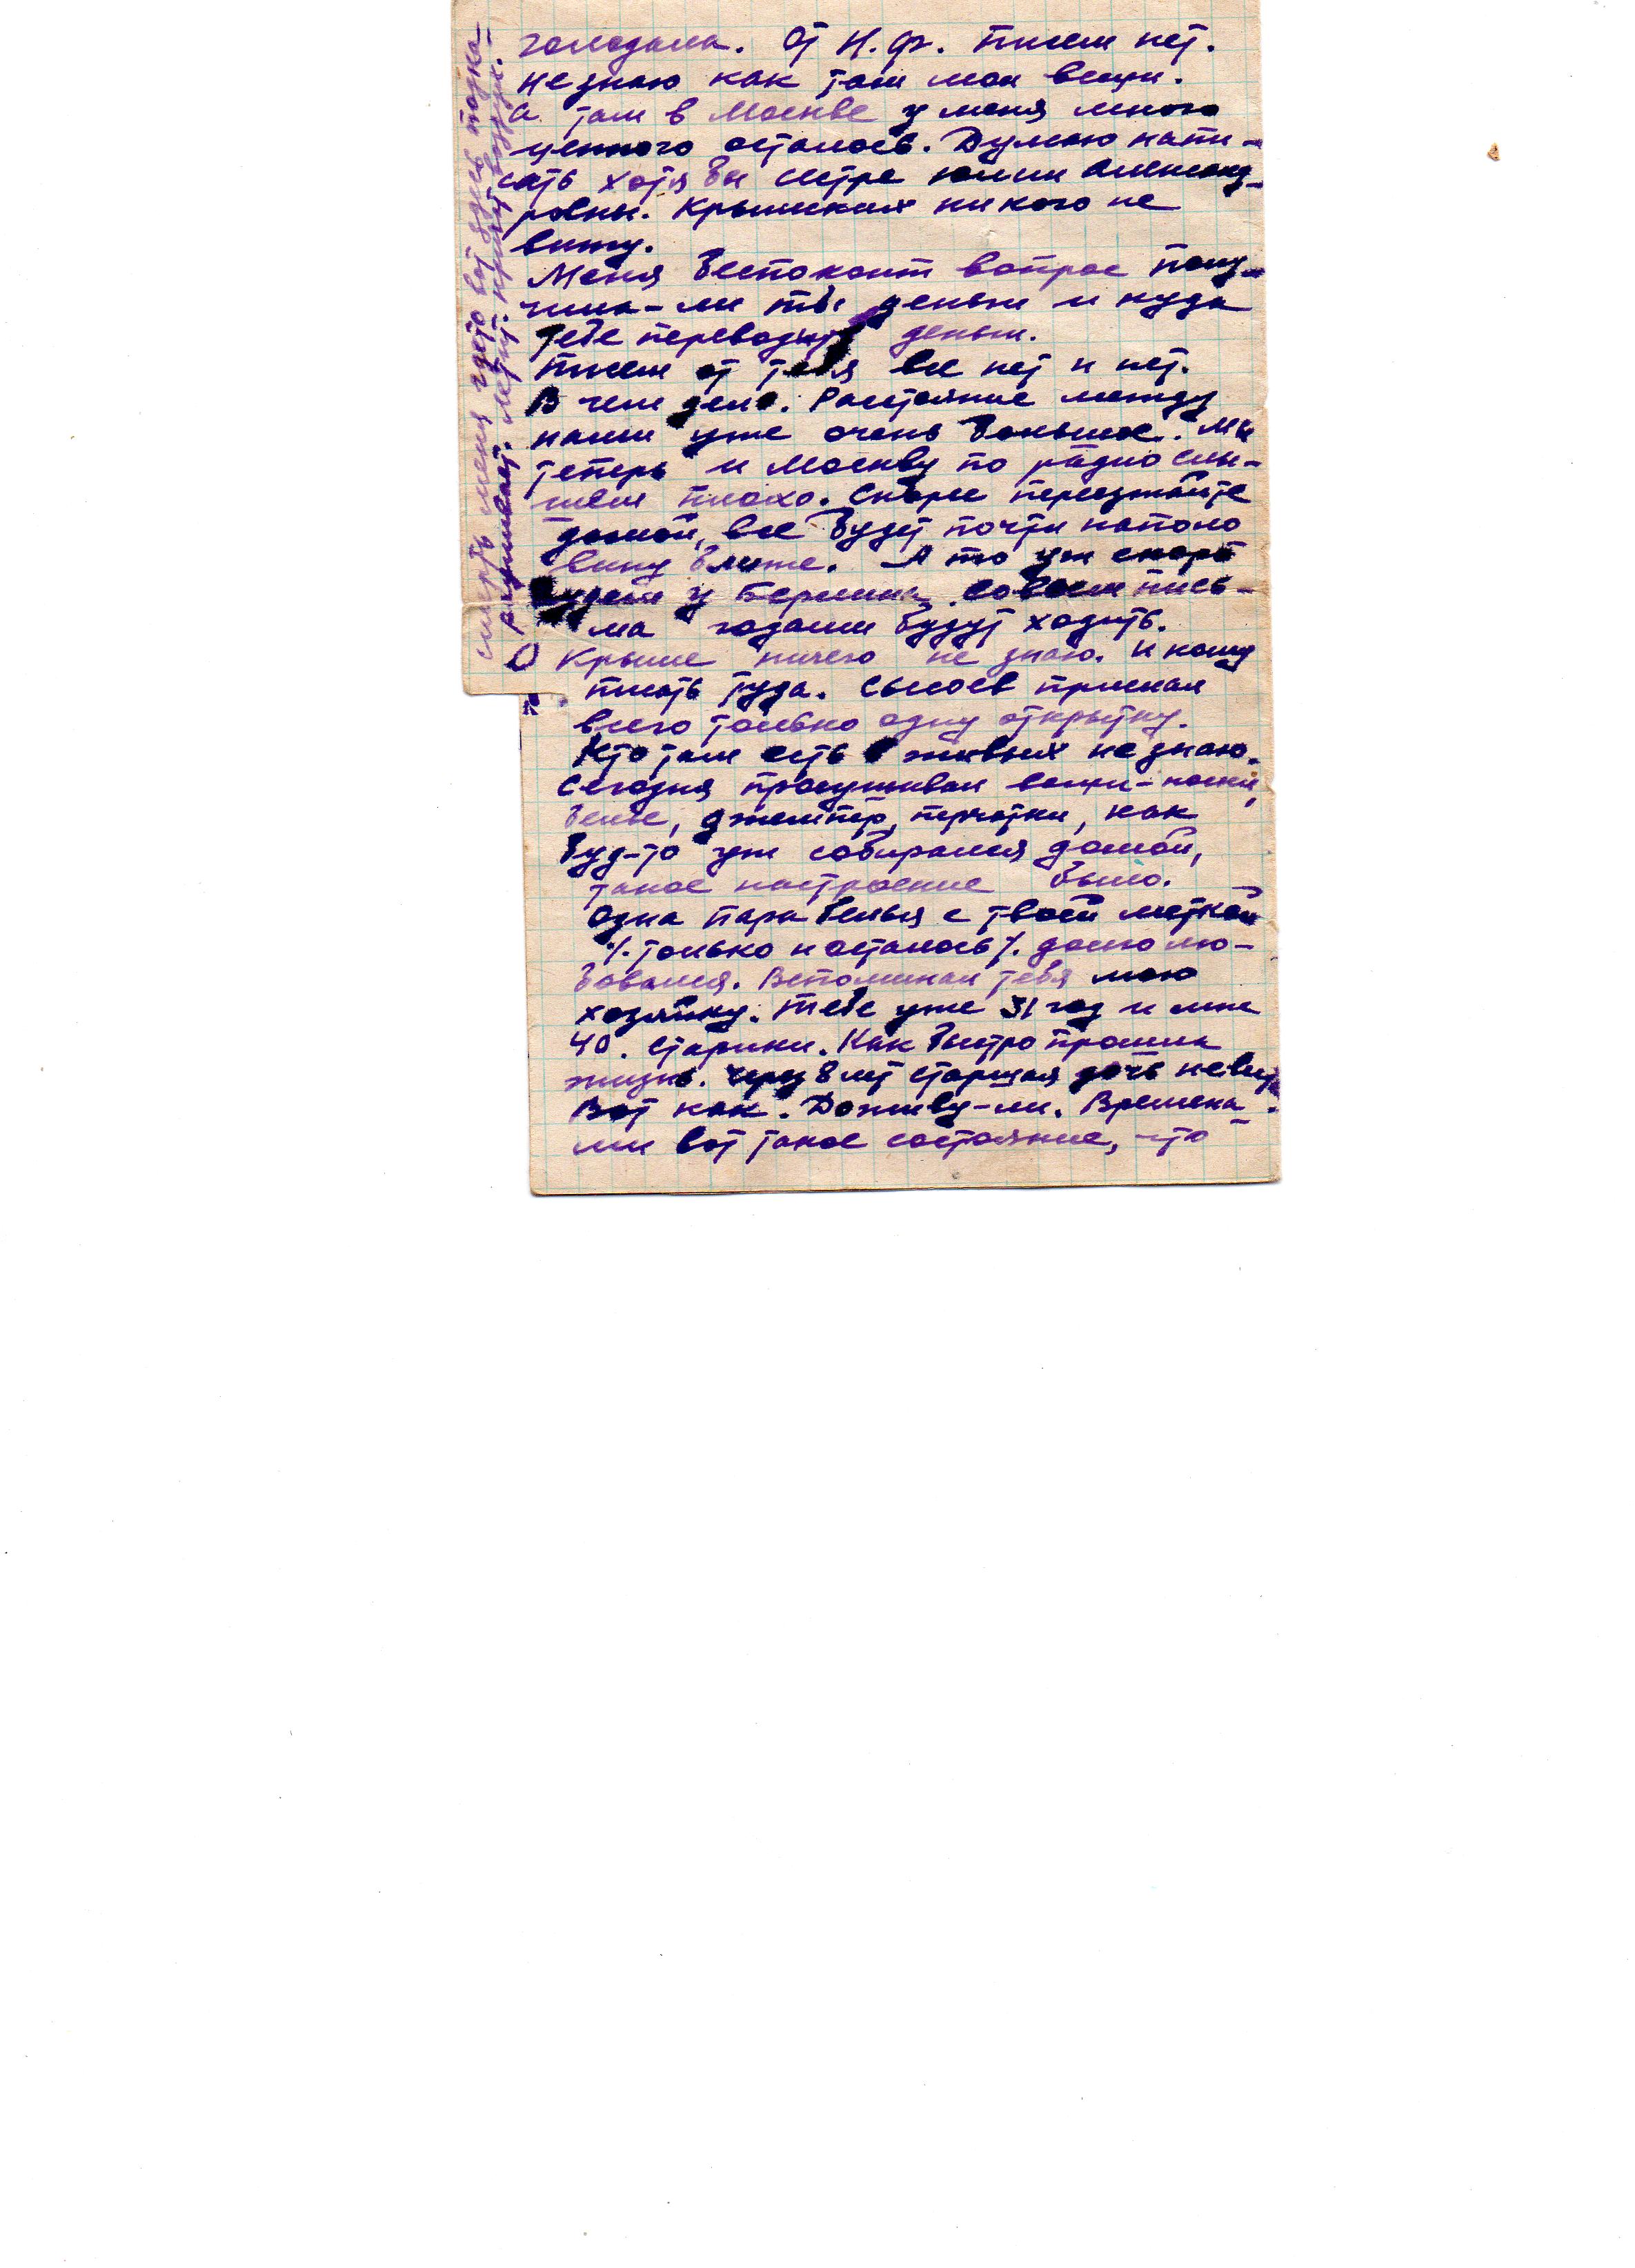 голодала. От Н.Ф. писем нет.
Не знаю как там мои вещи.
А там в Москве у меня много
ценного осталось. Думаю напи-
сать хотя бы сестре Юлии Александ-
ровны. Крымских никого не
вижу.
Меня беспокоит вопрос полу-
чила-ли ты деньги и куда
тебе переводить деньги.
Писем от тебя все нет и нет.
В чем дело. Расстояние между
нами уже очень большое. Мы
теперь и Москву по радио слы-
шем плохо. Скорее переезжайте
домой, все будет почти наполо
вину ближе. А то уж скоро
будем у Берлина, совсем пись-
ма годами будут ходить.
О Крыме ничего не знаю. И кому
писать туда. Сысоев прислал
всего только одну открытку.
Кто там есть в живых не знаю.
Сегодня просушивал вещи - носки,
белье, джемпер, перчатки, как
буд-то уж собирался домой,
такое настроение было.
Одна пара белья с твоей меткой
/. только и осталось /. долго лю-
бовался. Вспоминал тебя мою
хозяйку. Тебе уже 31 год и мне
40. Старики. Как быстро прошла
жизнь. Через 8 лет старшая дочь невеста
Вот как. Доживу-ли. Времена-
ми вот такое состояние, что
смерть меня где-то вот здесь